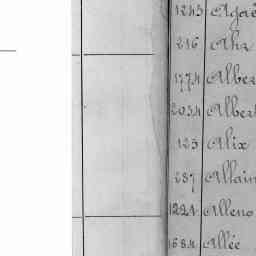 1243 Agaë
216 Ahr
1774 Alber
2034 Albert
123 Alix
237 Allain
1291 Alleno
1684 Allée